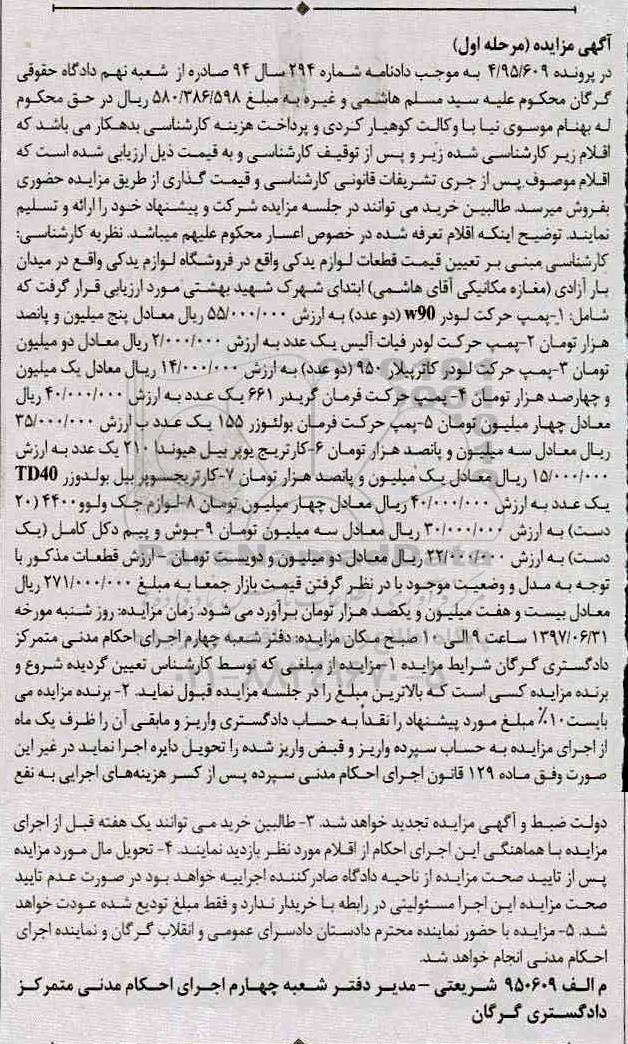 آگهی مزایده (مرحله اول)
در پرونده ۴/۹۵/۶۰۹ به موجب دادنامه شماره ۲۹۴ سال ۹۴ صادره از شعبه نهم دادگاه حقوقی
گرگان محکوم علیه سید مسلم هاشمی و غیره به مبلغ ۵۸۰/۳۸۶/۵۹۸ ریال در حق محکوم
له بهنام موسوی نیا با وکالت کوهیار کردی و پرداخت هزینه کارشناسی بدهکار می باشد که
اقلام زیر کارشناسی شده زیر و پس از توقیف کارشناسی و به قیمت ذیل ارزیابی شده است که
اقلام موصوف پس از جری تشریفات قانونی کارشناسی و قیمت گذاری از طریق مزایده حضوری
بفروش میرسد. طالبین خرید می توانند در جلسه مزایده شرکت و پیشنهاد خود را ارائه و تسلیم
نمایند. توضیح اینکه اقلام تعرفه شده در خصوص اعسار محکوم علیهم میباشد. نظریه کارشناسی:
کارشناسی مبنی بر تعیین قیمت قطعات لوازم یدکی واقع در فروشگاه لوازم یدکی واقع در میدان
بار آزادی (مغازه مکانیکی آقای هاشمی) ابتدای شهرک شهید بهشتی مورد ارزیابی قرار گرفت که
شامل: ۱-پمپ حرکت لودر w90 (دو عدد) به ارزش ۵۵/۰۰۰/۰۰۰ ریال معادل پنج میلیون و پانصد
هزار تومان ۲-پمپ حرکت لودر فیات آلیس یک عدد به ارزش ۲/۰۰۰/۰۰۰ ریال معادل دو میلیون
تومان ۳-پمپ حرکت لودر کاترپیلار ۹۵۰ (دو عدد) به ارزش ۱۴/۰۰۰/۰۰۰ ریال معادل یک میلیون
و چهارصد هزار تومان ۴- پمپ حرکت فرمان گریدر ۶۶۱ یک عدد به ارزش ۴۰/۰۰۰/۰۰۰ ریال
معادل چهار میلیون تومان ۵-پمپ حرکت فرمان بولئوزر ۱۵۵ یک عدد ب ارزش ۳۵/۰۰۰/۰۰۰
ریال معادل سه میلیون و پانصد هزار تومان ۶-کارتریج یوپر بیل هیوندا ۲۱۰ یک عدد به ارزش
۱۵/۰۰۰/۰۰۰ ریال معادل یک میلیون و پانصد هزار تومان ۷-کارتریجسوپر بیل بولدوزر TD40
یک عدد به ارزش ۴۰/۰۰۰/۰۰۰ ریال معادل چهار میلیون تومان ۸-لوازم جک ولوو۴۴۰۰ (۲۰
دست) به ارزش ۳۰/۰۰۰/۰۰۰ ریال معادل سه میلیون تومان ۹-بوش و پیم دکل کامل (یک
دست) به ارزش ۲۲/۰۰۰/۰۰۰ ریال معادل دو میلیون و دویست تومان - ارزش قطعات مذکور با
توجه به مدل و وضعیت موجود با در نظر گرفتن قیمت بازار جمعا به مبلغ ۲۷۱/۰۰۰/۰۰۰ ریال
معادل بیست و هفت میلیون و یکصد هزار تومان برآورد می شود. زمان مزایده: روز شنبه مورخه
۱۳۹۷/۰۶/۳۱ ساعت ۹ الی ۱۰ صبح مکان مزایده: دفتر شعبه چهارم اجرای احکام مدنی متمرکز
دادگستری گرگان شرایط مزایده ۱-مزایده از مبلغی که توسط کارشناس تعیین گردیده شروع و
برنده مزایده کسی است که بالاترین مبلغ را در جلسه مزایده قبول نماید. ۲- برنده مزایده می
بایست ۱۰٪ مبلغ مورد پیشنهاد را نقداً به حساب دادگستری واریز و مابقی آن را ظرف یک ماه
از اجرای مزایده به حساب سپرده واریز و قبض واریز شده را تحویل دایره اجرا نماید در غیر این
صورت وفق ماده ۱۲۹ قانون اجرای احکام مدنی سپرده پس از کسر هزینه‌های اجرایی به نفع
دولت ضبط و آگهی مزایده تجدید خواهد شد. ۳- طالبین خرید می توانند یک هفته قبل از اجرای
مزایده با هماهنگی این اجرای احکام از اقلام مورد نظر بازدید نمایند. ۴- تحویل مال مورد مزایده
پس از تایید صحت مزایده از ناحیه دادگاه صادرکننده اجراییه خواهد بود در صورت عدم تایید
صحت مزایده این اجرا مسئولیتی در رابطه با خریدار ندارد و فقط مبلغ تودیع شده عودت خواهد
شد. ۵- مزایده با حضور نماینده محترم دادستان دادسرای عمومی و انقلاب گرگان و نماینده اجرای
احکام مدنی انجام خواهد شد.
م الف ۹۵۰۶۰۹ شریعتی – مدیر دفتر شعبه چهارم اجرای احکام مدنی متمرکز
دادگستری گرگان